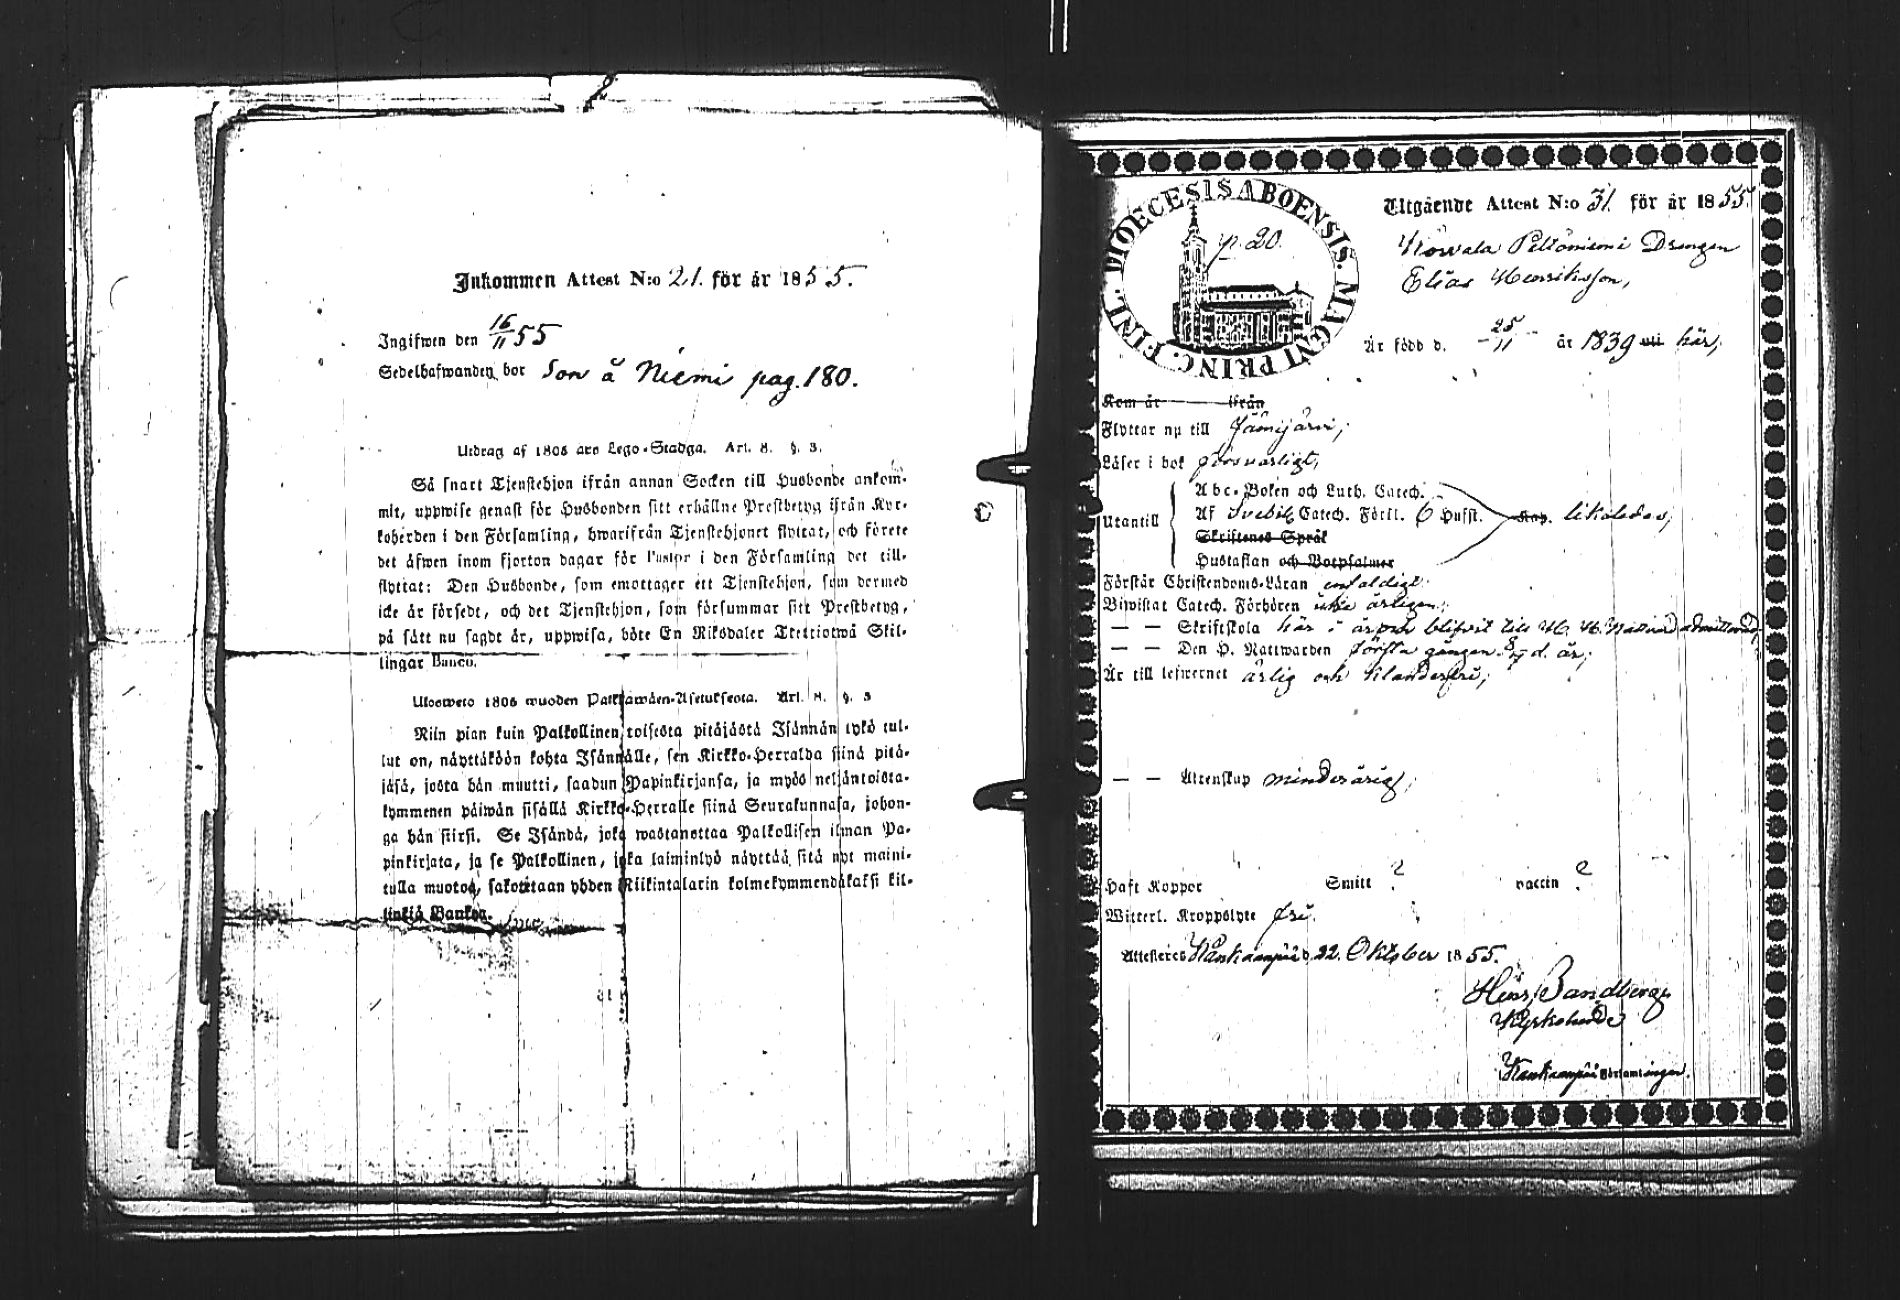 Inkommen Attest N:o 21. för år 1855.
Ingifwen den 16/11 55
Sedelhafwanden bor Son å Niemi pag. 180.
Utdrag af 1805 års Lego-Stadga. Art. 8. §. 3.
Så snart Tjenstehjon ifrån annan Socken till Husbonde ankom-
mit, uppwise genast för Husbonden sitt erhållne Prestbetyg ifrån Kyr-
koherden i den Församling, hwarifrån Tjenstehjonet flyttat, och förete
det äfwen inom fjorton dagar för Pastor i den Församling det till-
flyttat: Den Husbonde, som emottager ett Tjenstehjon, som dermed
icke är försedt, och det Tjenstehjon, som försummar sitt Prestbetyg,
på sätt nu sagdt är, uppwisa, böte En Riksdaler Trettiotwå Skil-
lingar Banco.
Ulosweto 1805 wuoden Palkkawäen-Asetuksesta. Art. 8. §. 3
Niin pian kuin Palkollinen toisesta pitäjästä Isännän tykö tul-
lut on, näyttäköön kohta Isännälle, sen Kirkko-Herralda siinä pitä-
jäsä, josta hän muutti, saadun Papinkirjansa, ja myös neljäntoista-
kymmenen päiwän sisällä Kirkko-Herralle siinä Seurakunnasa, johon-
ga hän siirsi. Se Isändä, joka wastanottaa Palkollisen ilman Pa-
pinkirjata, ja se Palkollinen, joka laiminlyö näyttää sitä nyt maini-
tulla muotoa, sakotetaan yhden Riikintalarin kolmekymmendäkaksi kil-
linkiä Bankos.
DIOECESIS ABOENSIS. MAGNI PRINC. FINL.
p. 20.
Utgående Attest N:o 31. för år 1855.
Peltoniemi Drengen
Elias Henriksson,
Är född d. 25/11 år 1839 uti här,
Kom år ifrån
Flyttar nu till Jämijärvi,
Läser i bok försvarligt,
Utantill
Abc-Boken och Luth. Catech.
Af Svebil. Catech. Förkl. 6 Hufst. Kap. likaledes,
Skriftenes Språk
Hustaflan och Botpsalmer
Förstår Christendoms-Läran enfaldigt
Biwistat Catech. Förhören årligen,
— — Skriftskola här i år och blifvit till H. H. Nattvard admitterad,
— — Den H. Nattwarden första gången d. år,
Är till lefwernet ärlig och klanderfri,
— — Äktenskap minderårig,
Haft Koppor Smitt ? vaccin ?
Witterl. Kroppslyte fri.
Attesteres Kankaanpää d. 22. Oktober 1855.
Henr. Sandberg
Kyrkoherde
Kankaanpää Församlingar.